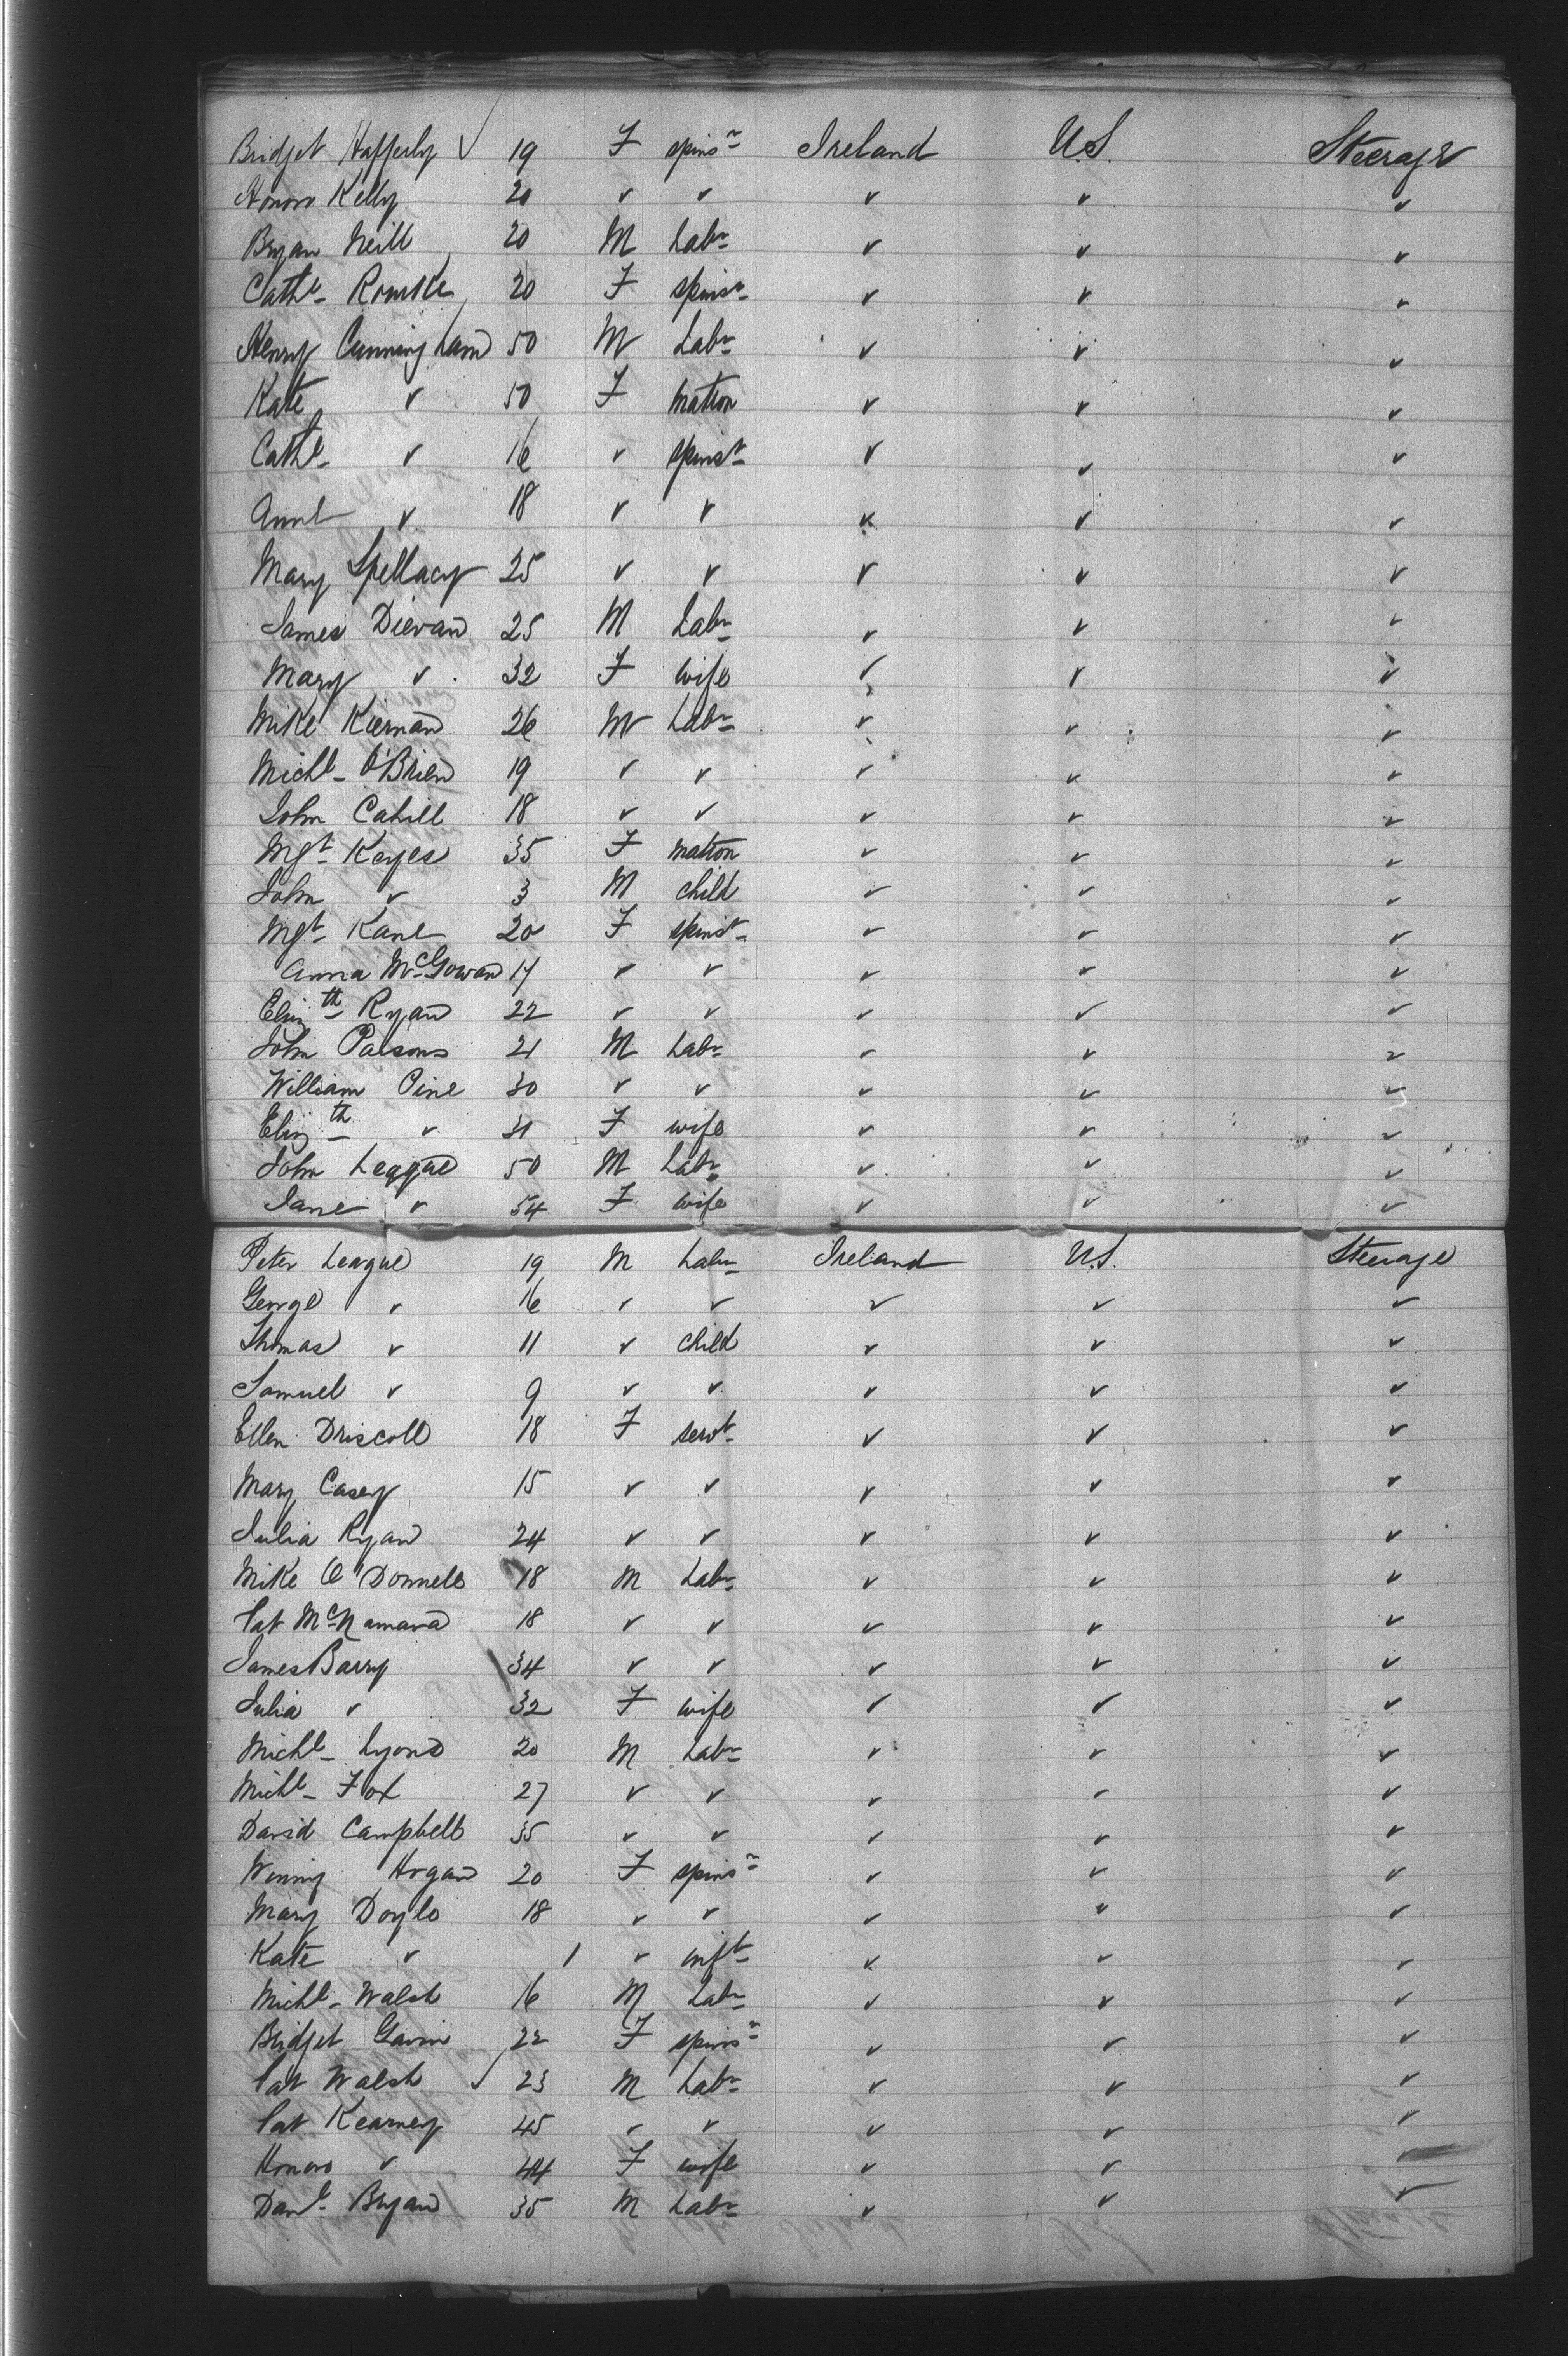 Bridget Hafferly ✓ 19 F spinsr Ireland U.S. Steerage
Honora Kelly 20 ✓ ✓ ✓ ✓ ✓
Bryan Neill 20 M Labr ✓ ✓ ✓
Cathe Rourke 20 F spinsr ✓ ✓ ✓
Henry Cunningham 50 M Labr ✓ ✓ ✓
Kate ✓ 50 F matron ✓ ✓ ✓
Cathe ✓ 16 ✓ spinstr ✓ ✓ ✓
Anne ✓ 18 ✓ ✓ ✓ ✓ ✓
Mary Spellacy 25 ✓ ✓ ✓ ✓ ✓
James Dievan 25 M Labr ✓ ✓ ✓
Mary ✓ 32 F wife ✓ ✓ ✓
Mike Kiernan 26 M Labr ✓ ✓ ✓
Michl O'Brien 19 ✓ ✓ ✓ ✓ ✓
John Cahill 18 ✓ ✓ ✓ ✓ ✓
Mgt Keyes 35 F matron ✓ ✓ ✓
John ✓ 3 M child ✓ ✓ ✓
Mgt Kane 20 F spinstr ✓ ✓ ✓
Anna McGowan 17 ✓ ✓ ✓ ✓ ✓
Elizth Ryan 22 ✓ ✓ ✓ ✓ ✓
John Parsons 21 M Labr ✓ ✓ ✓
William Pine 30 ✓ ✓ ✓ ✓ ✓
Elizth ✓ 31 F wife ✓ ✓ ✓
John League 50 M Labr ✓ ✓ ✓
Jane ✓ 54 F wife ✓ ✓ ✓
Peter League 19 M Labr Ireland U.S. Steerage
George ✓ 16 ✓ ✓ ✓ ✓ ✓
Thomas ✓ 11 ✓ child ✓ ✓ ✓
Samuel ✓ 9 ✓ ✓ ✓ ✓ ✓
Ellen Driscoll 18 F servt ✓ ✓ ✓
Mary Casey 15 ✓ ✓ ✓ ✓ ✓
Julia Ryan 24 ✓ ✓ ✓ ✓ ✓
Mike O'Donnell 18 M Labr ✓ ✓ ✓
Pat McNamara 18 ✓ ✓ ✓ ✓ ✓
James Barry 34 ✓ ✓ ✓ ✓ ✓
Julia ✓ 32 F wife ✓ ✓ ✓
Michl Lyons 20 M Labr ✓ ✓ ✓
Michl Fox 27 ✓ ✓ ✓ ✓ ✓
David Campbell 35 ✓ ✓ ✓ ✓ ✓
Winny Hogan 20 F spinsr ✓ ✓ ✓
Mary Doyle 18 ✓ ✓ ✓ ✓ ✓
Kate ✓ 1 ✓ inft ✓ ✓ ✓
Michl Walsh 16 M Labr ✓ ✓ ✓
Bridget Gavin 22 F spinsr ✓ ✓ ✓
Pat Walsh ✓ 23 M Labr ✓ ✓ ✓
Pat Kearney 45 ✓ ✓ ✓ ✓ ✓
Honora ✓ 44 F wife ✓ ✓ ✓
Danl Bryan 35 M Labr ✓ ✓ ✓